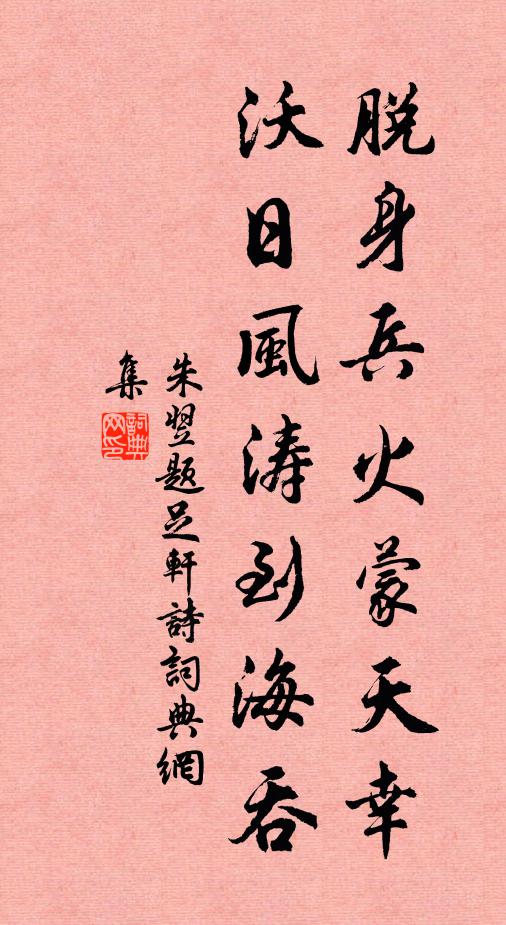 脱身兵火蒙天幸
沃日風涛到海吞
朱翌题足軒詩詞典網
集
詞典
网印